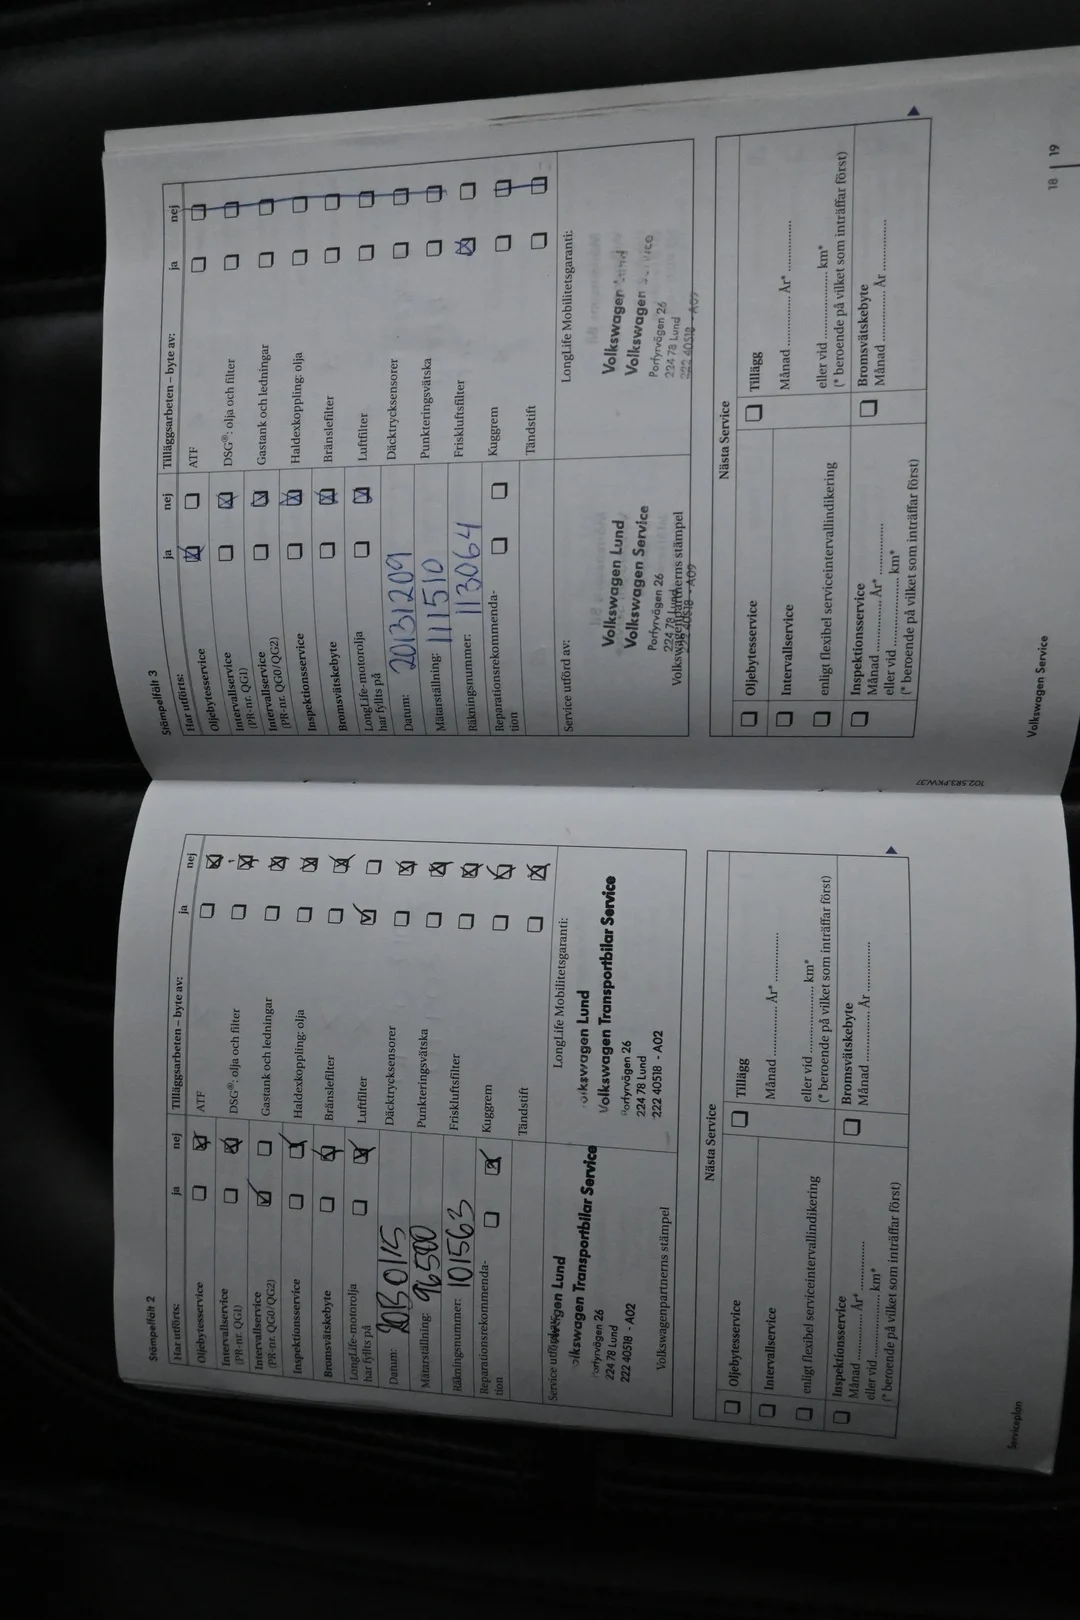 Stämpelfält 2
Har utförts:
ja
nej
Tilläggsarbeten – byte av:
ja
nej
Oljebytesservice
ATF
Intervallservice
(PR-nr. QG1)
DSG®: olja och filter
Intervallservice
(PR-nr. QG0/QG2)
Gastank och ledningar
Inspektionsservice
Haldexkoppling: olja
Bromsvätskebyte
Bränslefilter
LongLife-motorolja
har fyllts på
Luftfilter
Datum: 20130115
Däcktrycksensorer
Mätarställning: 96500
Punkteringsvätska
Räkningsnummer: 101563
Friskluftsfilter
Reparationsrekommenda-
tion
Kuggrem
Tändstift
Service utförd av:
LongLife Mobilitetsgaranti:
Lund
Volkswagen Transportbilar Service
Porfyrvägen 26
224 78 Lund
222 40518 - A02
Volkswagenpartnerns stämpel
Volkswagen Lund
Volkswagen Transportbilar Service
Porfyrvägen 26
224 78 Lund
222 40518 - A02
Nästa Service
Oljebytesservice
Tillägg
Intervallservice
Månad .............. År* ..............
enligt flexibel serviceintervallindikering
eller vid .................. km*
(* beroende på vilket som inträffar först)
Inspektionsservice
Månad .............. År* ..............
eller vid .................. km*
(* beroende på vilket som inträffar först)
Bromsvätskebyte
Månad .............. År ..............
Serviceplan
Stämpelfält 3
Har utförts:
ja
nej
Tilläggsarbeten – byte av:
ja
nej
Oljebytesservice
ATF
Intervallservice
(PR-nr. QG1)
DSG®: olja och filter
Intervallservice
(PR-nr. QG0/QG2)
Gastank och ledningar
Inspektionsservice
Haldexkoppling: olja
Bromsvätskebyte
Bränslefilter
LongLife-motorolja
har fyllts på
Luftfilter
Datum: 20131209
Däcktrycksensorer
Mätarställning: 111510
Punkteringsvätska
Räkningsnummer: 113064
Friskluftsfilter
Reparationsrekommenda-
tion
Kuggrem
Tändstift
Service utförd av:
LongLife Mobilitetsgaranti:
Volkswagen Lund
Volkswagen Service
Porfyrvägen 26
224 78 Lund
222 40518 - A09
Volkswagenpartnerns stämpel
Volkswagen Lund
Volkswagen Service
Porfyrvägen 26
224 78 Lund
222 40518 - A09
Nästa Service
Oljebytesservice
Tillägg
Intervallservice
Månad .............. År* ..............
enligt flexibel serviceintervallindikering
eller vid .................. km*
(* beroende på vilket som inträffar först)
Inspektionsservice
Månad .............. År* ..............
eller vid .................. km*
(* beroende på vilket som inträffar först)
Bromsvätskebyte
Månad .............. År ..............
102.5R3.PKW.37
Volkswagen Service
18 | 19